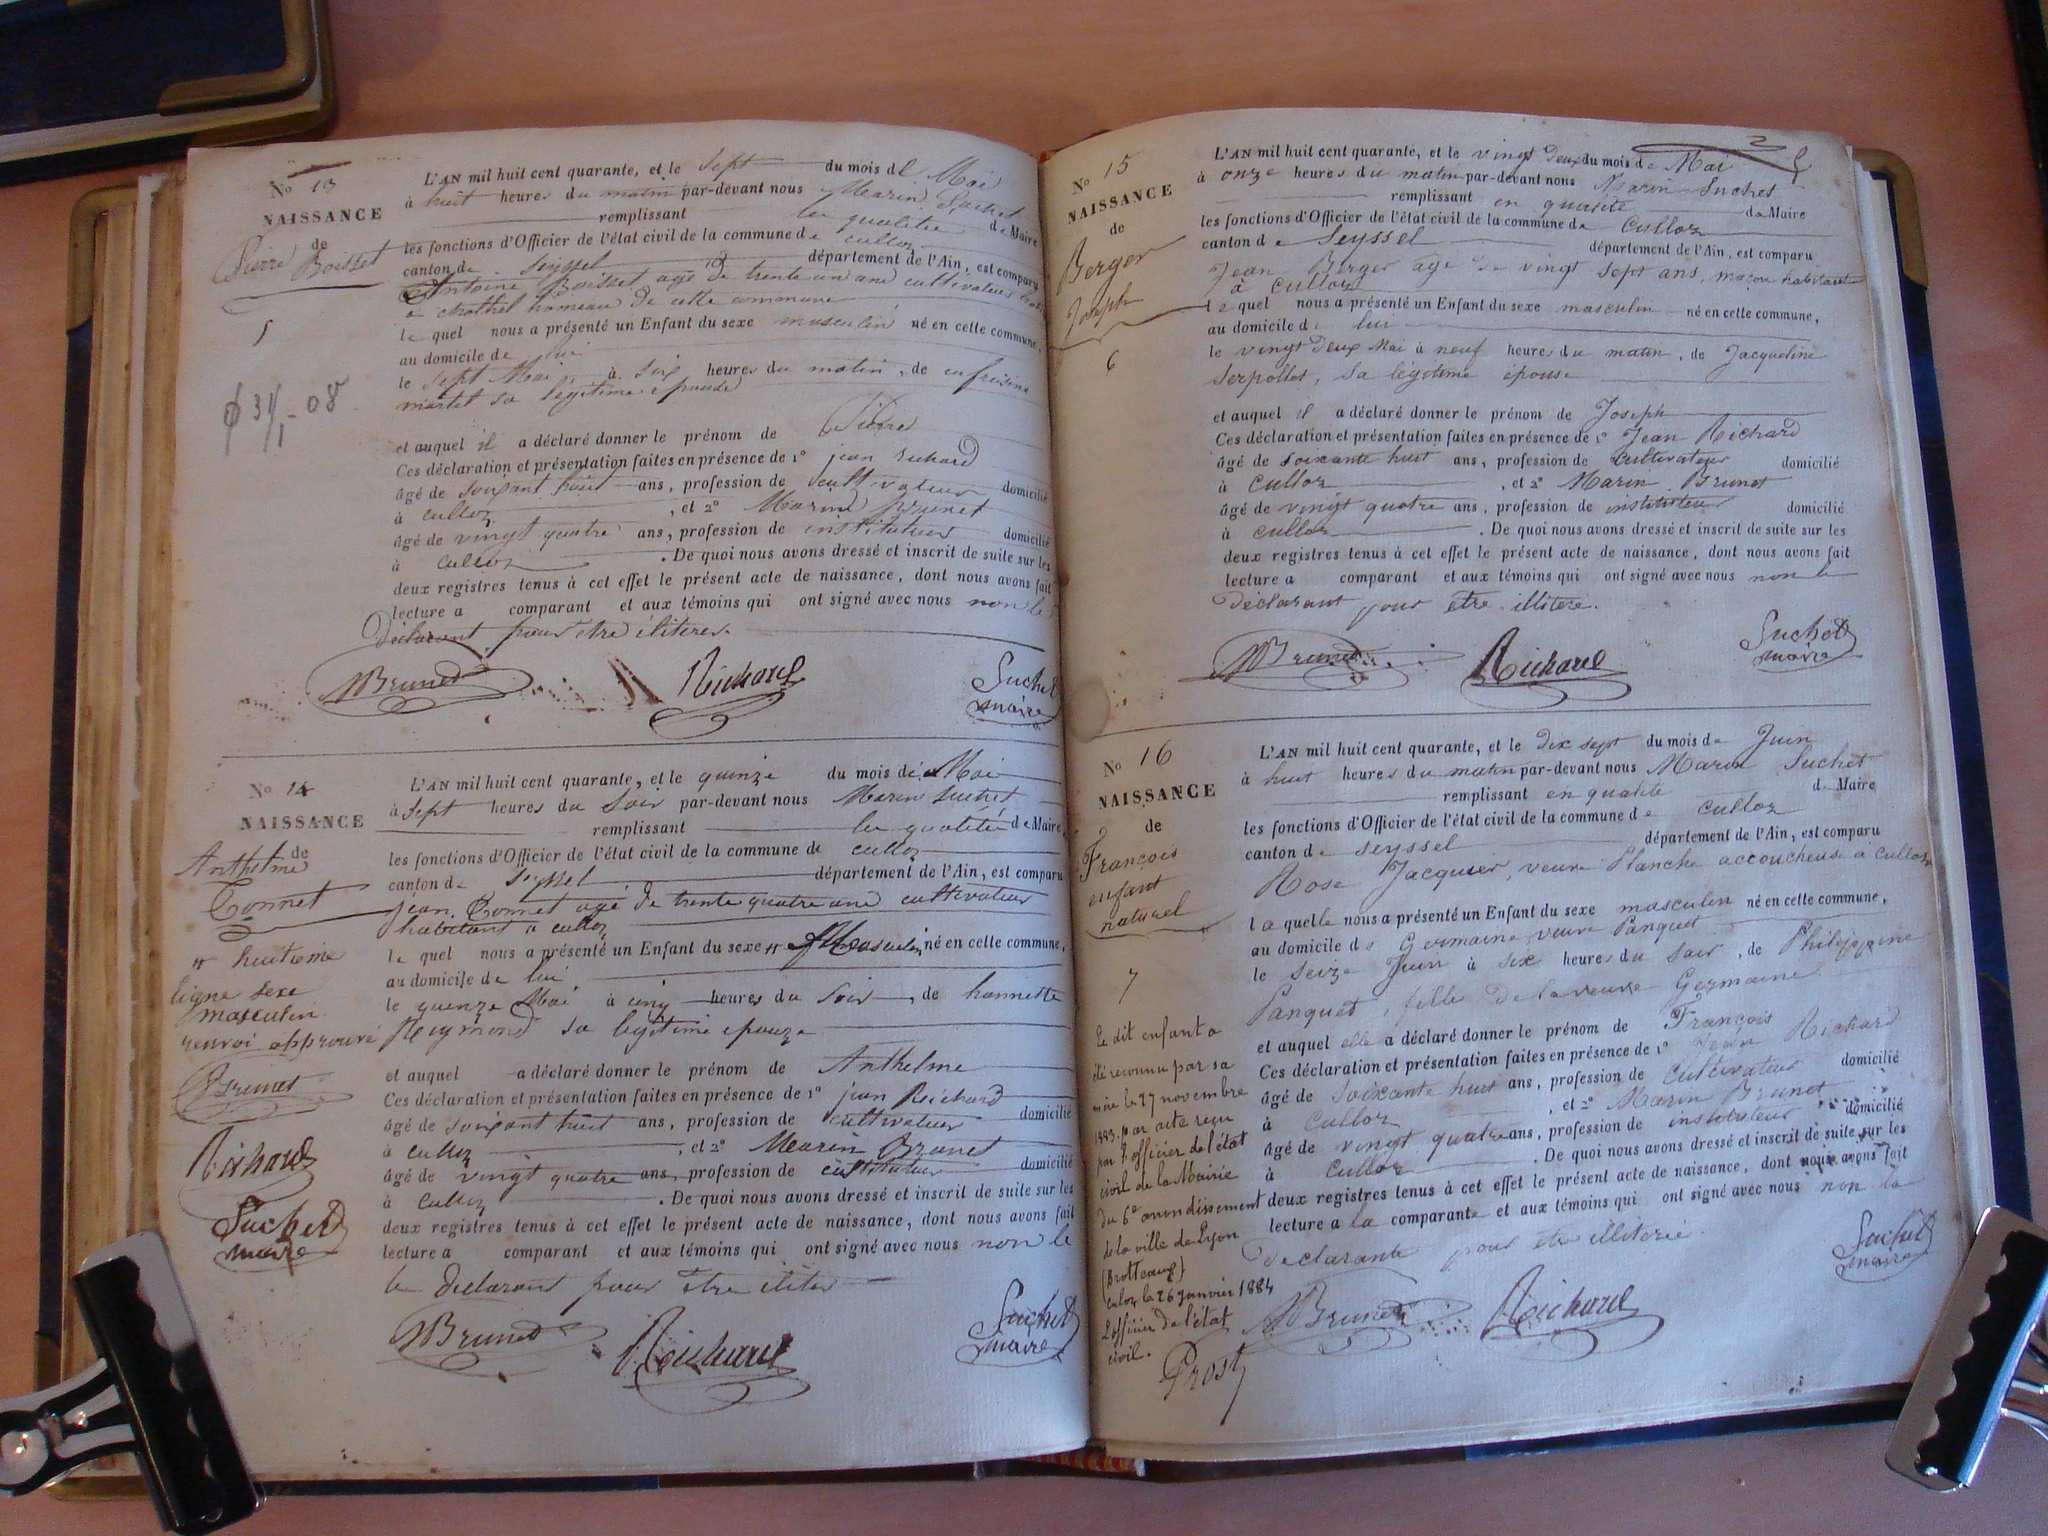 No 13
NAISSANCE
de
Pierre Boisset
5
31/1-08
L'AN mil huit cent quarante, et le sept du mois de Mai
à huit heures du matin par-devant nous Marin Suchet
remplissant en qualitée de Maire
les fonctions d'Officier de l'état civil de la commune de culloz
canton de Seyssel département de l'Ain, est comparu
Antoine Boisset agé de trente un ans cultivateur
hameau de cette commune
le quel nous a présenté un Enfant du sexe masculin né en cette commune,
au domicile de lui
le sept Mai à six heures du matin, de
sa légitime épouse
et auquel il a déclaré donner le prénom de Pierre
Ces déclaration et présentation faites en présence de 1° jean richard
âgé de soixant huit ans, profession de cultivateur domicilié
à culloz, et 2° Marin Brunet
âgé de vingt quatre ans, profession de instituteur domicilié
à culloz. De quoi nous avons dressé et inscrit de suite sur les
deux registres tenus à cet effet le présent acte de naissance, dont nous avons fait
lecture a comparant et aux témoins qui ont signé avec nous non le
déclarant pour etre éliteres.
MBrunet Richard Suchet
maire
No 14
NAISSANCE
de
Anthelme
Connet
huitième
ligne sexe
masculin
renvoi approuvé
Brunet
Richard
Suchet
maire
L'AN mil huit cent quarante, et le quinze du mois de Mai
à sept heures du soir par-devant nous Marin Suchet
remplissant en qualitée de Maire
les fonctions d'Officier de l'état civil de la commune de culloz
canton de Seyssel département de l'Ain, est comparu
jean Connet agé de trente quatre ans cultivateur
habitant a culloz
le quel nous a présenté un Enfant du sexe masculin né en cette commune,
au domicile de lui
le quenze Mai à cinq heures du soir, de
Reymond sa legitime epouze
et auquel a déclaré donner le prénom de Anthelme
Ces déclaration et présentation faites en présence de 1° jean Richard
âgé de soixant huit ans, profession de cultivateur domicilié
à culloz, et 2° Marin Brunet
âgé de vingt quatre ans, profession de instituteur domicilié
à culloz. De quoi nous avons dressé et inscrit de suite sur les
deux registres tenus à cet effet le présent acte de naissance, dont nous avons fait
lecture a comparant et aux témoins qui ont signé avec nous non le
le declarant pour être iliter
MBrunet Richard Suchet
maire
No 15
NAISSANCE
de
Berger
Joseph
6
L'AN mil huit cent quarante, et le vingt deux du mois de Mai
à onze heures du matin par-devant nous Marin Suchet
remplissant en qualité de Maire
les fonctions d'Officier de l'état civil de la commune de Culloz
canton de Seyssel département de l'Ain, est comparu
Jean Berger agé de vingt sept ans, maçon habitant
à Culloz
le quel nous a présenté un Enfant du sexe masculin né en cette commune,
au domicile de lui
le vingt deux Mai à neuf heures du matin, de Jacqueline
Serpollet, sa légitime épouse
et auquel il a déclaré donner le prénom de Joseph
Ces déclaration et présentation faites en présence de 1° Jean Richard
âgé de soixante huit ans, profession de cultivateur domicilié
à Culloz, et 2° Marin Brunet
âgé de vingt quatre ans, profession de instituteur domicilié
à culloz. De quoi nous avons dressé et inscrit de suite sur les
deux registres tenus à cet effet le présent acte de naissance, dont nous avons fait
lecture a comparant et aux témoins qui ont signé avec nous non le
déclarant pour etre illitere.
MBrunet Richard Suchet
maire
No 16
NAISSANCE
de
François
enfant
naturel
7
Le dit enfant a
été reconnu par sa
mère le 27 novembre
1883 par acte reçu
par l'officier de l'état
civil de la Mairie
du 6e arrondissement
de la ville de Lyon
(Brotteaux)
Culoz le 26 janvier 1884
L'officier de l'état
civil.
Prost
L'AN mil huit cent quarante, et le dix sept du mois de Juin
à huit heures du matin par-devant nous Marin Suchet
remplissant en qualité de Maire
les fonctions d'Officier de l'état civil de la commune de Culloz
canton de Seyssel département de l'Ain, est comparu
Rose Jacquier, veuve Planche accoucheuse à Culloz
la quelle nous a présenté un Enfant du sexe masculin né en cette commune,
au domicile de Germaine, veuve Panquet
le seize Juin à six heures du soir, de Philippine
Panquet, fille de la veuve Germaine
et auquel elle a déclaré donner le prénom de François
Ces déclaration et présentation faites en présence de 1° Jean Richard
âgé de soixante huit ans, profession de cultivateur domicilié
à Culloz, et 2° Marin Brunet
âgé de vingt quatre ans, profession de instituteur domicilié
à Culloz. De quoi nous avons dressé et inscrit de suite sur les
deux registres tenus à cet effet le présent acte de naissance, dont nous avons fait
lecture a la comparante et aux témoins qui ont signé avec nous non la
declarante pour etre illiterée.
MBrunet Richard Suchet
maire